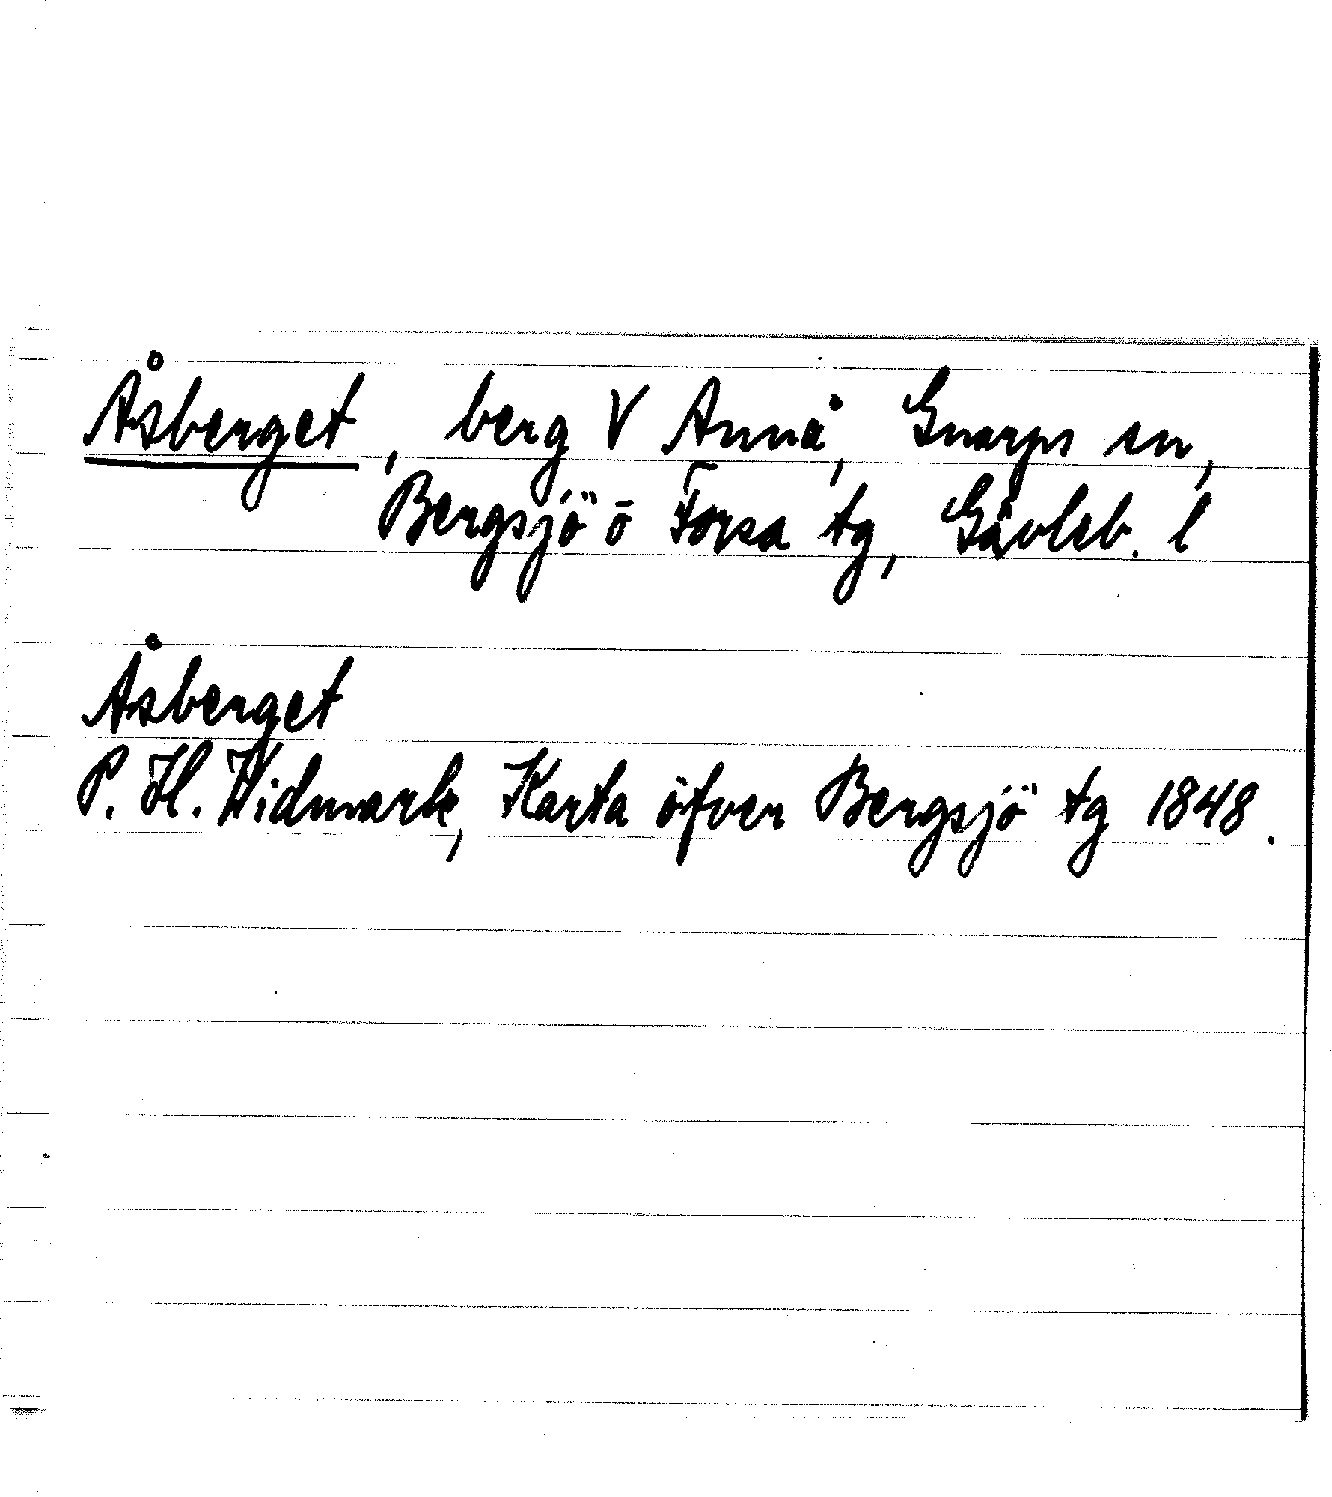 Åsberget, berg V Annå, Gnarps sn,
Bergsjö o Forsa tg, Gävleb. l
Åsberget
P. H. Widmark, Karta öfver Bergsjö tg 1848.